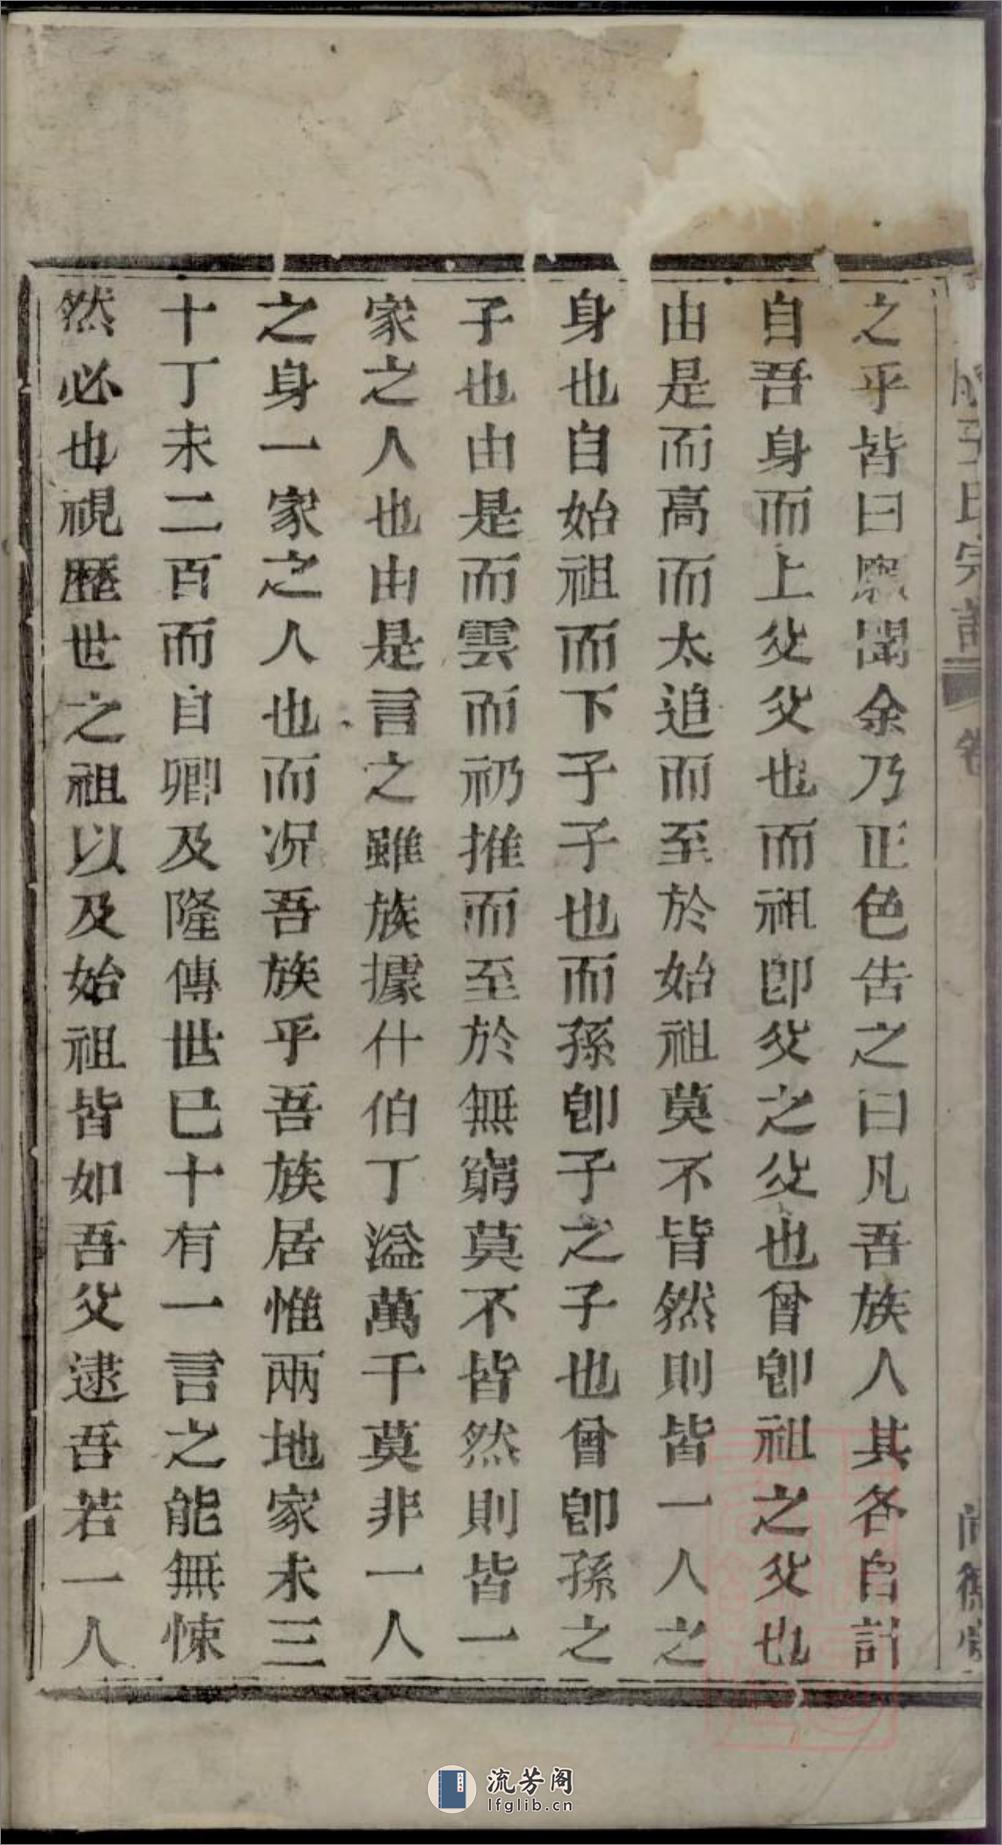 之乎皆曰愿聞余乃正色告之曰凡吾族人其各自計
自吾身而上父父也而祖卽父之父也曾卽祖之父也
由是而高而太追而至於始祖莫不皆然則皆一人之
身也自始祖而下子子也而孫卽子之子也曾卽孫之
子也由是而雲而礽推而至於無窮莫不皆然則皆一
家之人也由是言之雖族據什伯丁溢萬千莫非一人
之身一家之人也而况吾族乎吾族居惟兩地家未三
十丁未二百而自卿及隆傳世已十有一言之能無悚
然必也視歷世之祖以及始祖皆如吾父逮吾若一人
流芳阁
lfglib.cn